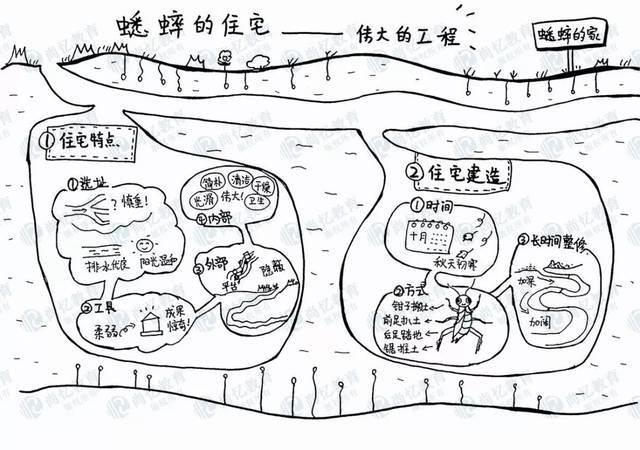 蟋蟀的住宅——伟大的工程
蟋蟀的家
①住宅特点
①选址
?慎重!
排水优良 阳光温和
②工具
柔弱
成果
惊奇!
③外部
平台
隐蔽
④内部
简朴 清洁 干燥
光滑 伟大! 卫生
②住宅建造
①时间
十月
秋天初寒
②方式
钳子搬土
前足扒土
后足踏地
锯推土
③长时间整修
加深
加阔
尚亿教育
版权所有